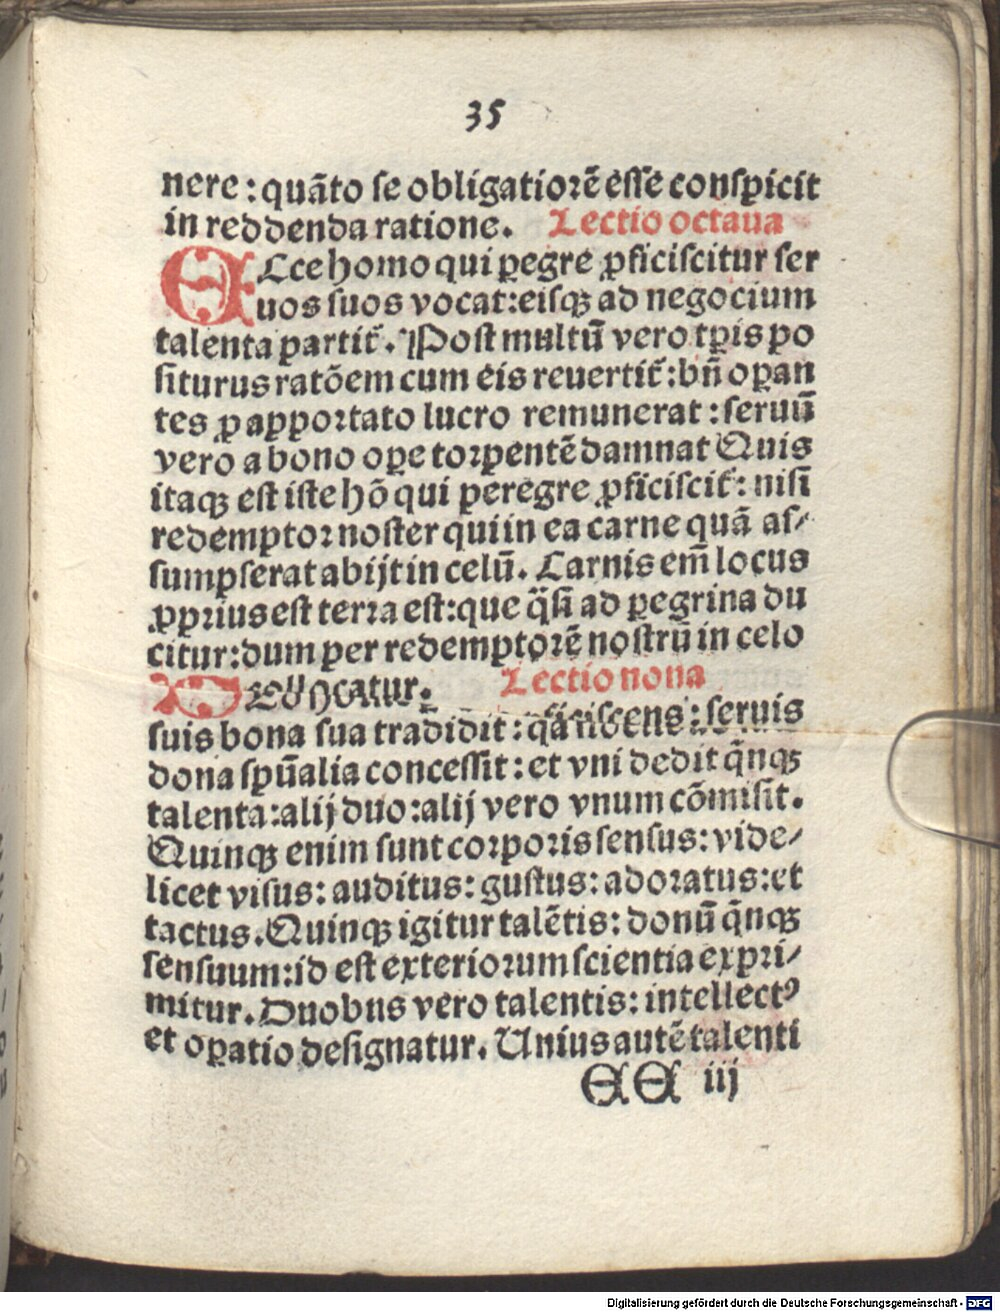 35
nere: quãto se obligatiorẽ esse conspicit
in reddenda ratione. Lectio octaua
ECce homo qui ꝑegre ꝓficiscitur ser
uos suos vocat: eisqꝫ ad negocium
talenta partit᷑. Post multũ vero tꝑis po
siturus ratõem cum eis reuertit᷑: bñ oꝑan
tes ꝓ apportato lucro remunerat: seruũ
vero a bono oꝑe torpentẽ damnat Quis
itaqꝫ est iste hõ qui peregre ꝓficiscit᷑: nisi
redemptor noster qui in ea carne quã as⸗
sumpserat abijt in celũ. Carnis em̃ locus
ꝓprius est terra est: que q̃si ad ꝑegrina du
citur: dum per redemptorẽ nostrũ in celo
Lectio nona
suis bona sua tradidit: seruis
dona spũalia concessit: et vni dedit q̃nqꝫ
talenta: alij duo: alij vero vnum cõmisit.
Quinqꝫ enim sunt corporis sensus: vide⸗
licet visus: auditus: gustus: adoratus: et
tactus. Quinqꝫ igitur talẽtis: donũ q̃nqꝫ
sensuum: id est exteriorum scientia expri⸗
mitur. Duobus vero talentis: intellectꝰ
et oꝑatio designatur. Unius autẽ talenti
EE iij
Digitalisierung gefördert durch die Deutsche Forschungsgemeinschaft - DFG